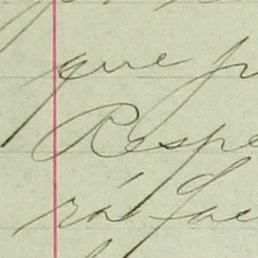 que p
Respe
rá fac